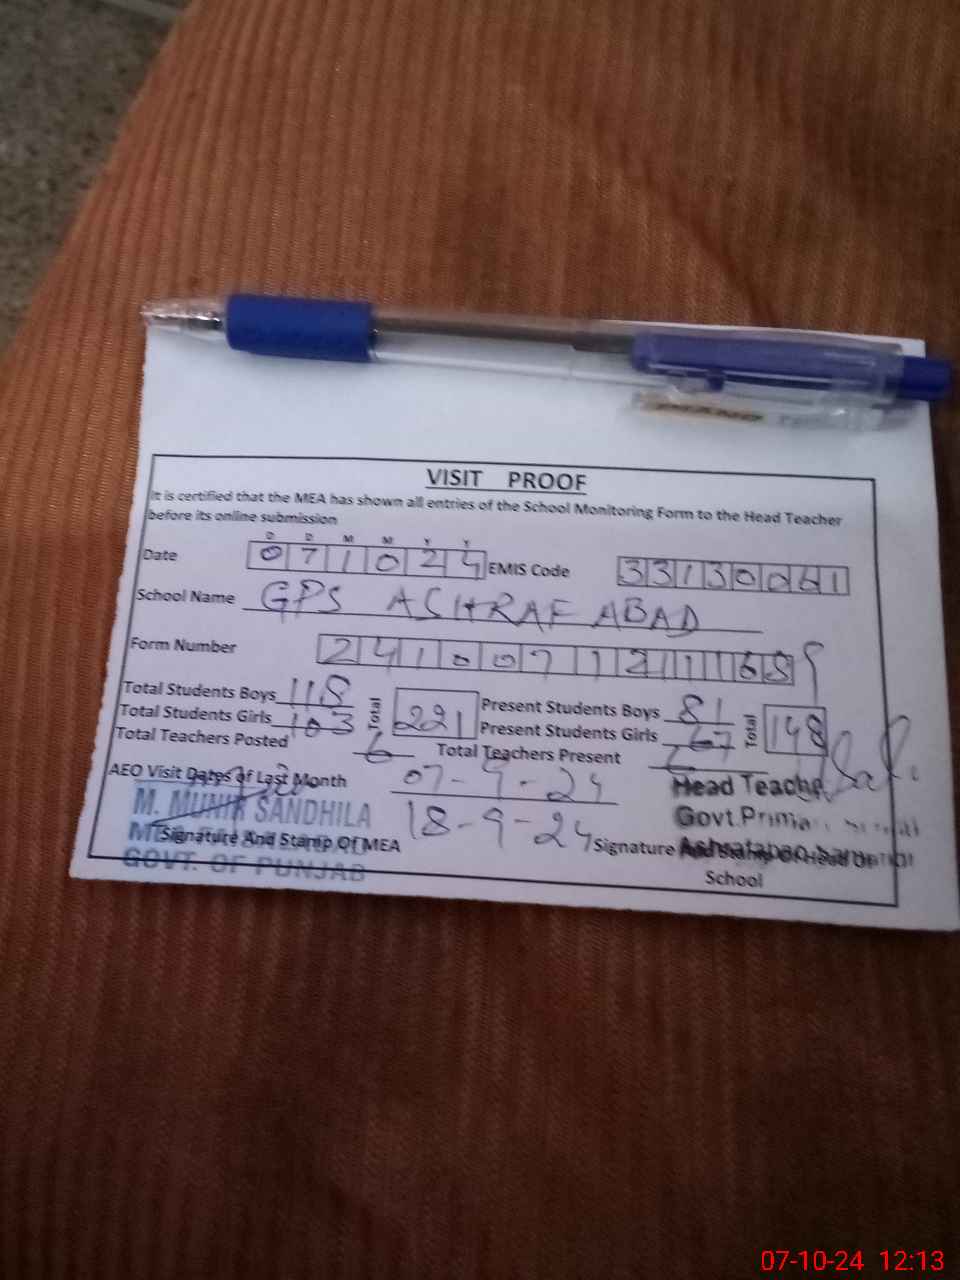 VISIT PROOF
It is certified that the MEA has shown all entries of the School Monitoring Form to the Head Teacher
before its online submission
D D M M Y Y
Date 071024 EMIS Code 33130061
School Name GPS ASHRAF ABAD
Form Number 24100712116
Total Students Boys 118 Total 221 Present Students Boys 81 Total 148
Total Students Girls 103 Present Students Girls 67
Total Teachers Posted 6 Total Teachers Present
AEO Visit Dates of Last Month 07-9-24
18-9-24
M. MUNIR SANDHILA
GOVT. OF PUNJAB
Signature And Stamp Of MEA
Head Teacher
Govt.Prima
Signature And Stamp Of Head Of
School
07-10-24 12:13